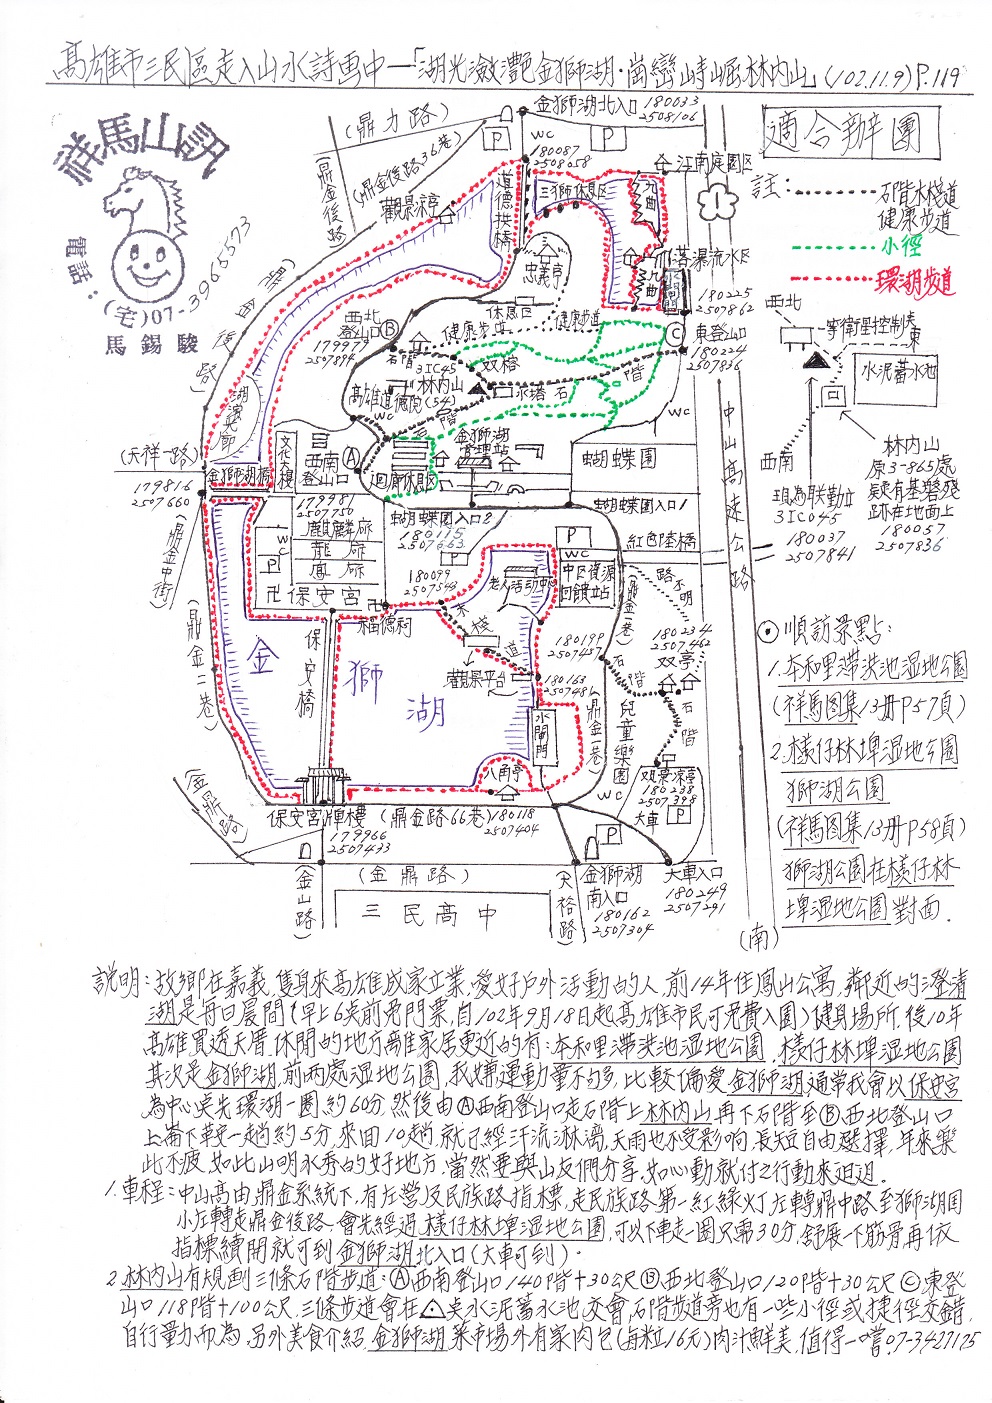 高雄市三民區走入山水詩画中—「湖光瀲灩金獅湖·崗巒峙崛林内山」(102.11.9)P.119
祥馬山訊
電話：
(宅)07-3965573
馬錫駿
適合辦團
註：
石階木棧道
健康步道
小徑
環湖步道
(鼎力路)
金獅湖北入口 180033
2508106
P
WC
P
180087
2508658
(鼎金後路36巷)
鼎金後路
觀景涼亭
道德拱橋
三獅休息区
九曲
江南庭園区
1
忠義亭
落瀑流水区
九曲
西北
登山口
B
179979
2507894
休息区
健康步道
健康步道
180225
2507862
C
東登山口
180224
2507836
石階
3IC45
双榕
林内山
(54)
高雄道德院
WC
水塔
石
階
WC
湖濱
(天祥一路)
179816
2507660
金獅湖橋
文化大樓
西南
登山口
A
迴廊休息区
金獅湖
蝴蝶園
179981
2507750
蝴蝶園入口2
180115
2507663
蝴蝶園入口1
麒麟廂
龍廂
鳳廂
WC
P
卍保安宮卍
180099
2507543
P
P
WC
紅色陸橋
中区資源
回饋站
老人活動中心
福德祠
木棧道
觀景平台
180199
2507457
180163
2507481
水閘門
鼎金中街
(鼎金二巷)
金獅湖
保安橋
八角亭
(鼎金一巷)
路不明
180234
2507462
双亭
石階
石階
兒童樂園
WC
观景涼亭
180238
2507398
大車
P
保安宮牌樓
(鼎金路66巷)
180118
2507404
179966
2507433
(金鼎路)
(金鼎路)
(金山路)
三民高中
(天裕路)
P
金獅湖
南入口
180162
2507304
大車入口
180249
2507291
(南)
中山高速公路
西北
東
水泥蓄水池
西南
3IC045
180037
2507841
林内山
原3-865處
疑有基磐殘
跡在地面上
180057
2507836
⊙順訪景點：
1.本和里滯洪池湿地公園
(祥馬图集13册P57頁)
2.檨仔林埤湿地公園
獅湖公園
(祥馬图集13册P58頁)
獅湖公園在檨仔林
埤湿地公園對面.
説明：故鄉在嘉義,隻身來高雄成家立業,愛好戶外活動的人,前14年住鳳山公寓,鄰近的澄清
湖是每日晨間(早上6点前免門票,自102年9月18日起高雄市民可免費入園)健身場所.後10年
高雄買透天厝.休閒的地方離家居更近的有：本和里滯洪池湿地公園,檨仔林埤湿地公園
其次是金獅湖,前两處湿地公園,我嫌運動量不夠多,比較偏愛金獅湖,通常我會以保安宮
為中心点先環湖一圈約60分,然後由Ⓐ西南登山口走石階上林内山再下石階至Ⓑ西北登山口
上崙下莘一趟約5分,來回10趟,就已經汗流淋漓,天雨也不受影响,長短自由選擇,年來樂
此不疲,如此山明水秀的好地方,當然要與山友們分享,如心動就付之行動來逛逛.
1.車程：中山高由鼎金系統下,有左營及民族路指標,走民族路第一紅綠灯左轉鼎中路至獅湖国
小左轉走鼎金後路.會先經過檨仔林埤湿地公園,可以下車走一圈只需30分,舒展一下筋骨再依
指標續開就可到金獅湖北入口(大車可到).
2.林内山有規劃三條石階步道:Ⓐ西南登山口140階+30公尺Ⓑ西北登山口120階+30公尺Ⓒ東登
山口118階+100公尺.三條步道會在△点水泥蓄水池交會,石階步道旁也有一些小徑或捷徑交錯,
自行量力而為.另外美食介紹,金獅湖菜市場外有家肉包(每粒16元)肉汁鮮美,值得一嚐.07-3427175